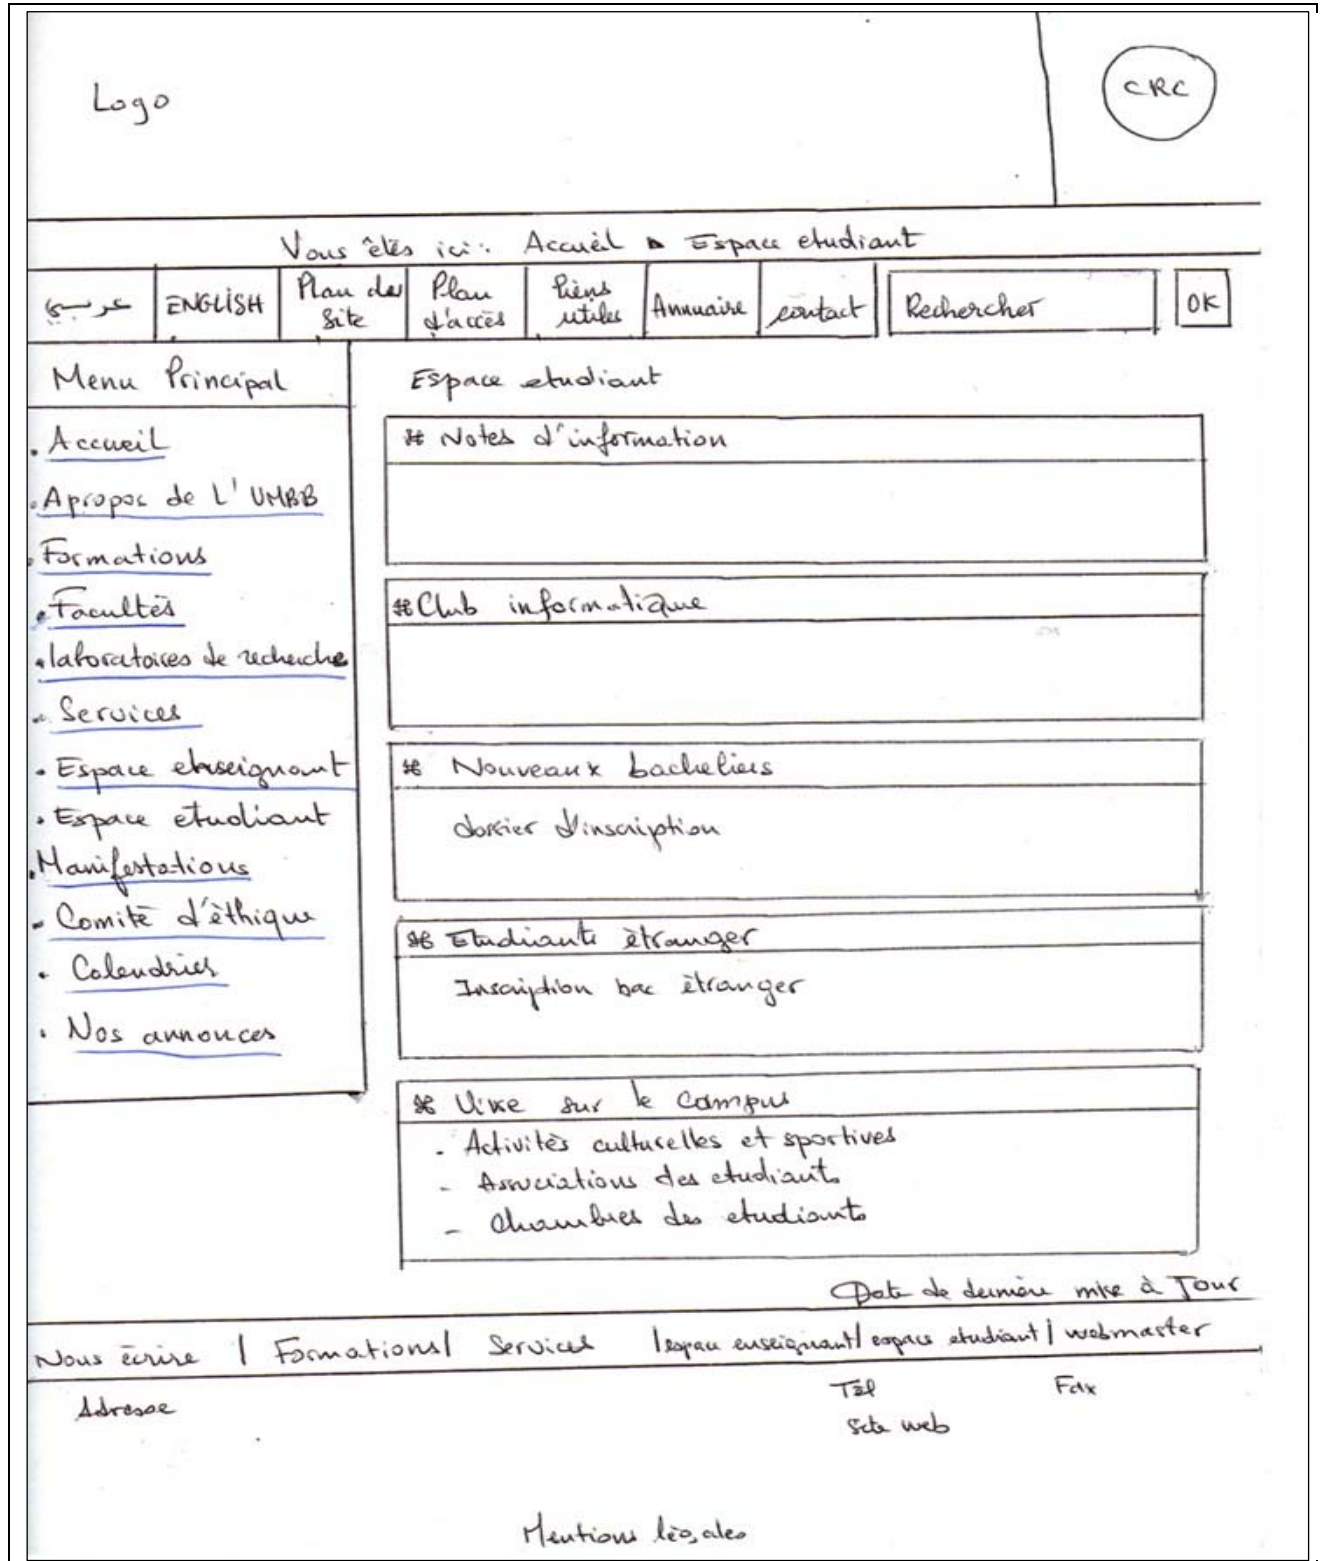 Logo
CRC
Vous êtes ici : Accueil ▸ Espace etudiant
عربي
ENGLISH
Plan du
Site
Plan
d'accès
liens
utiles
Annuaire
contact
Rechercher
OK
Menu Principal
. Accueil
. Apropos de L'UMBB
. Formations
. Facultés
. laboratoires de recherche
. Services
. Espace enseignant
. Espace etudiant
. Manifestations
- Comité d'éthique
. Calendrier
. Nos annonces
Espace etudiant
⌘ Notes d'information
⌘ Club informatique
⌘ Nouveaux bacheliers
dossier d'inscription
⌘ Etudiants étranger
Inscription bac étranger
⌘ Vivre sur le campus
- Activités culturelles et sportives
- Associations des etudiants
- Chambres des etudiants
Date de dernière mise à Jour
Nous écrire | Formations | Services | espace enseignant | espace etudiant | webmaster
Adresse
Tél
Fax
Site web
Mentions légales